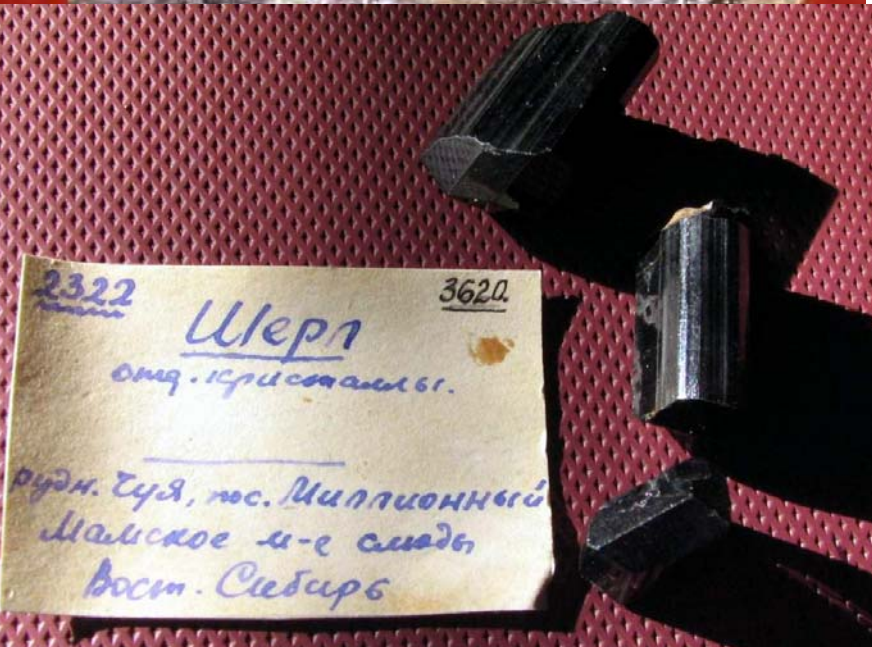 2322
3620.
Шерл
отд. кристаллы.
рудн. Чуя, пос. Миллионный
Мамское м-е слюды
Вост. Сибирь